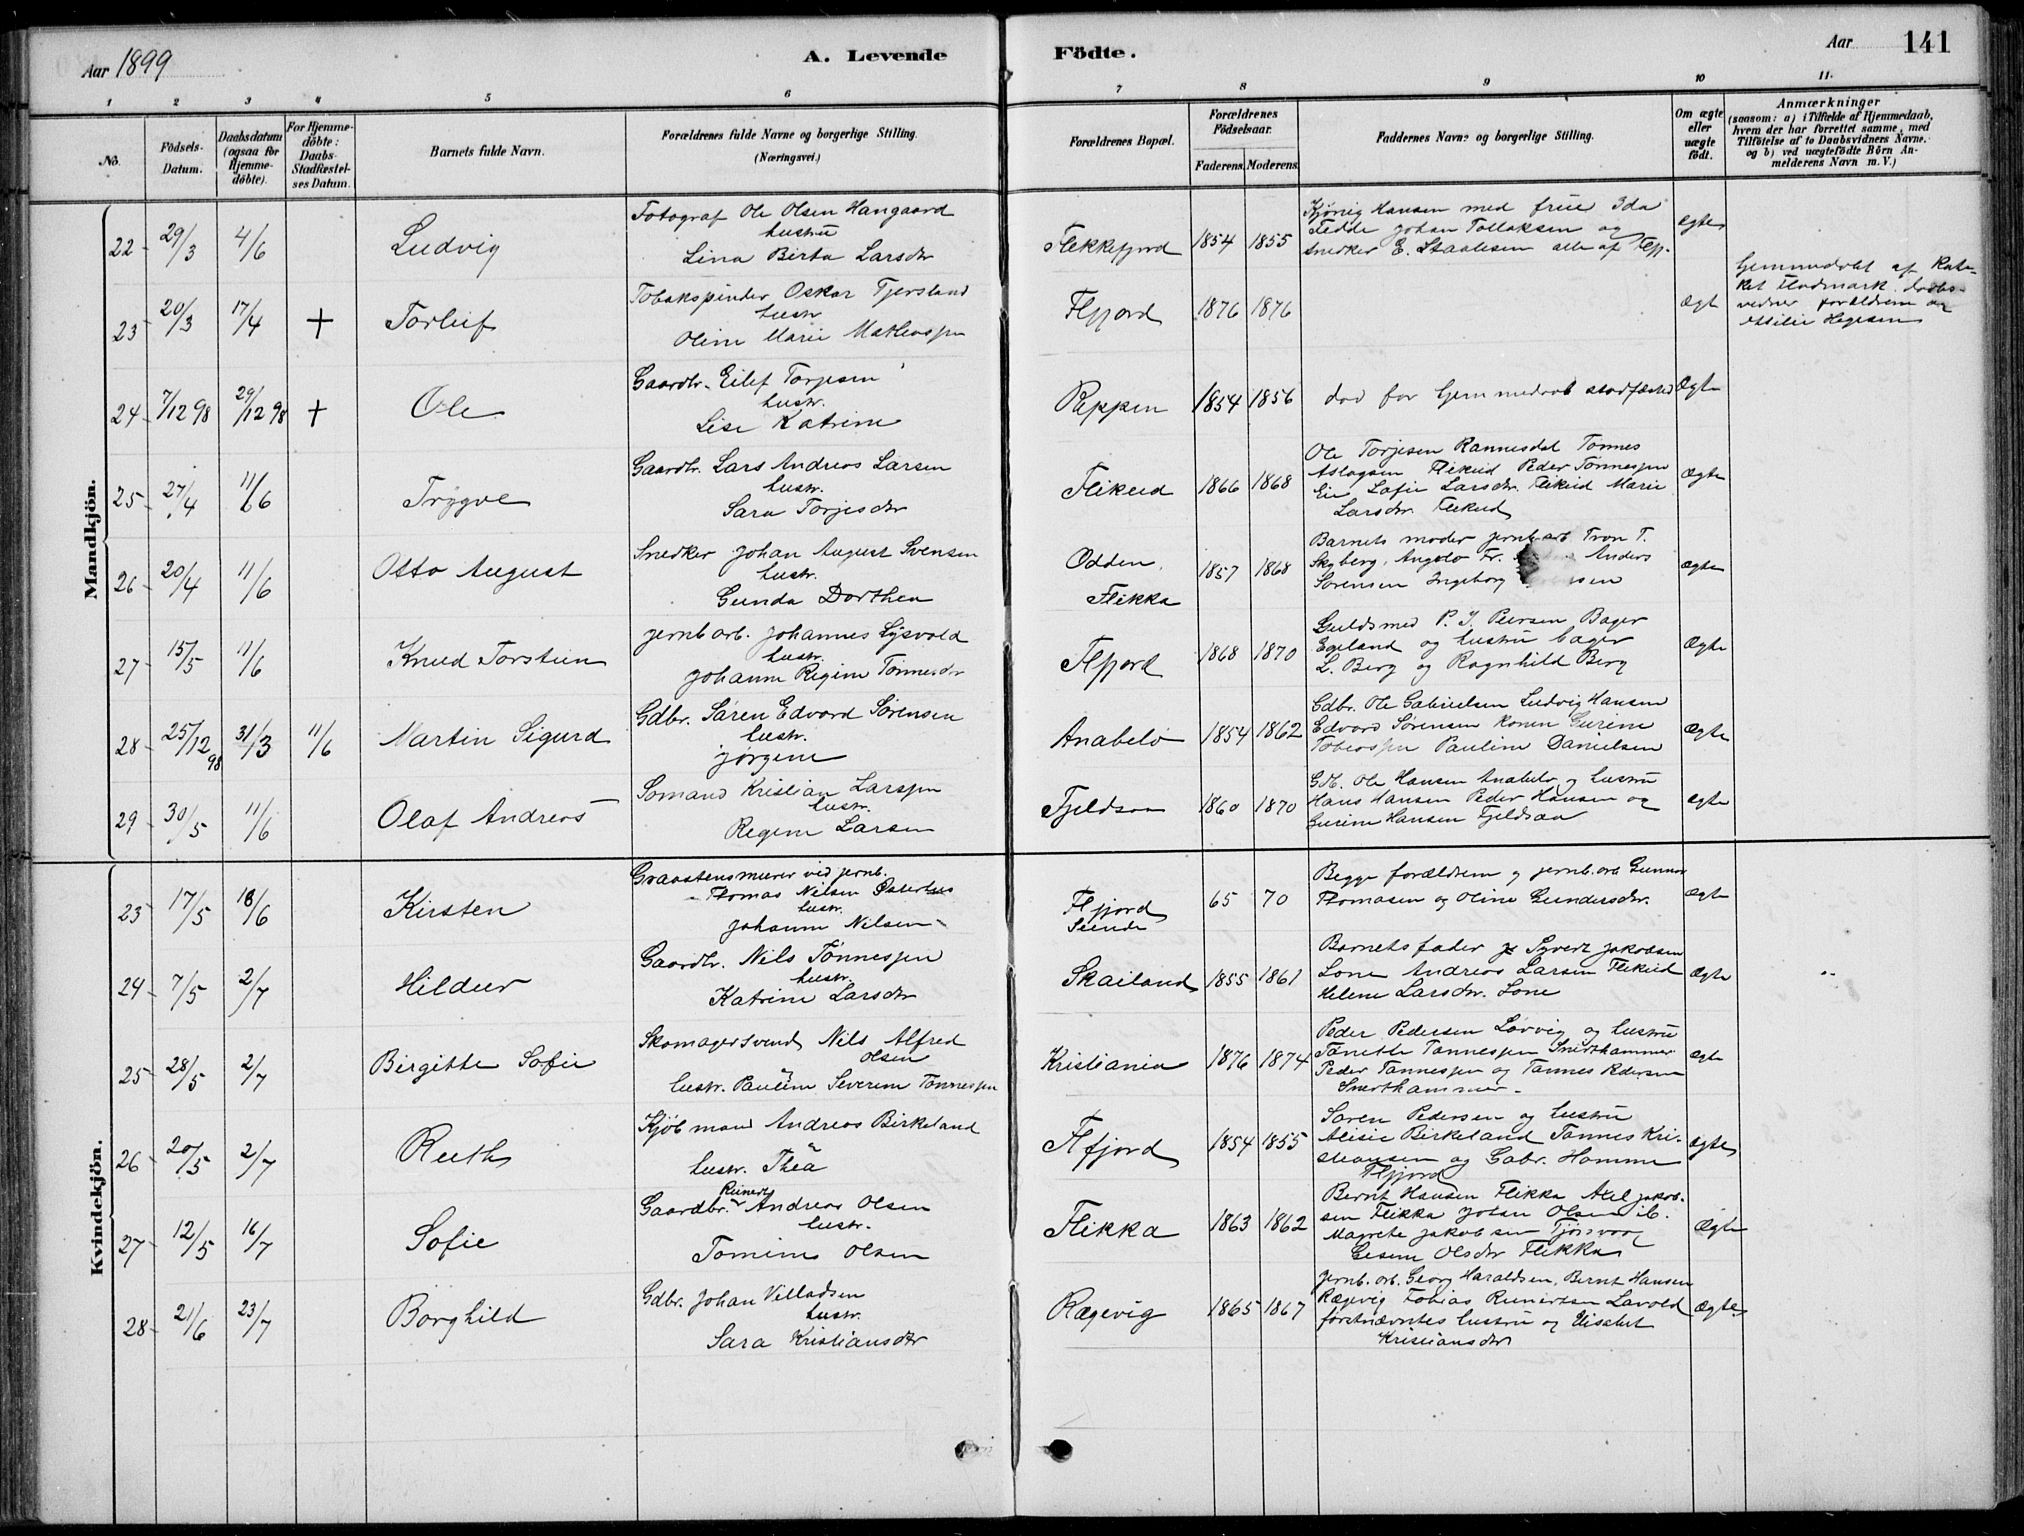 Aar 1899
A. Levende
Födte.
Aar
141
1 2 3 4 5 6 7 8 9 10 11.
No.
Födsels-
Datum.
Daabsdatum
(ogsaa for
Hjemme-
döbte).
For Hjemme-
döbte:
Daabs-
Stadfæstel-
ses Datum.
Barnets fulde Navn.
Forældrenes fulde Navne og borgerlige Stilling.
(Næringsvei.)
Forældrenes Bopæl.
Forældrenes
Födselsaar.
Faderens. Moderens.
Faddernes Navne og borgerlige Stilling.
Om ægte
eller
uægte
födt.
Anmærkninger
(saasom: a) i Tilfælde af Hjemmedaab,
hvem der har forrettet samme, med
Tilföielse af to Daabsvidners Navne.
og b) ved uægtefödte Börn An-
melderens Navn m. V.)
Mandkjön.
22 29/3 4/6 Ludvig
Fotograf Ole Olsen Hangaard
hustru
Lina Birta Larsdtr
Flekkefjord 1854 1855
Kjönig Hansen med frue Ida
Fedde Johan Tollaksen og
snedker E. Staalesen alle af Flfj.
ægte
23 20/3 17/4 + Torleif
Tobakspinder Oskar Tjersland
hustr
Oline Marie Mathiasen
Flfjord 1876 1876
ægt
Hjemmedøbt af Kate-
ket Flodmark. daabs-
vidner forældrene og
24 7/12 98 29/12 98 + Ole
Gaardbr. Eilef Torjesen
hustr.
Lise Katrine
Reppen 1854 1856
død før hjemmedaab stadfæsted
Ægte
25 27/4 11/6 Trygve
Gaardbr. Lars Andreas Larsen
hustr.
Sara Torjesdtr
Flikeid 1866 1868
Ole Torjesen Rannesdal Tønnes
Aslagsen Flikeid Peder Tønnesen
Eie Sofie Larsdtr. Flikeid Marie
Larsdtr. Flikeid
Ægte
26 20/4 11/6 Otto August
Snedker Johan August Svensen
hustr.
Gunda Dorthea
Odden,
Flikka
1857 1868
Barnets moder jernb.arb Tron T.
Skyberg, Fr. Anders
Sørensen Ingeborg
ægte
27 15/5 11/6 Knud Torstein
jernb arb. Johannes Lysvold
hustr.
Johanne Regine Tønnesdtr
Flfjord 1868 1870
Guldsmed P. J. Peersen Bager
Egeland og hustru bager
L. Berg og Ragnhild Berg
Ægte
28 25/12 98 31/3 11/6 Martin Sigurd
Gdbr. Søren Edvard Sørensen
hustr.
Jørgine
Anabelø 1854 1862
Gdbr. Ole Gabrielsen Ludvig Hansen
Edvard Sørensen konen Gurine
Tobiassen Pauline Danielsen
Ægte
29 30/5 11/6 Olaf Andreas
Sømand Kristian Larsen
hustr.
Regine Larsen
Fjeldsaa 1860 1870
Gdb. Ole Hansen Anabelø og hustru
Hans Hansen Peder Hansen og
Gurine Hansen Fjeldsaa
ægte
Kvindekjön.
23 17/5 18/6 Kirsten
Graastensmurer ved jernb.
Thomas Nilsen Østerhus
hustr.
Johanne Nilsen
Flfjord
Sunde
65 70
Begge forældrene og jernb. arb Gunnar
Thomasen og Oline Gundersdtr.
ægte
24 7/5 2/7 Hildur
Gaardbr. Nils Tønnesen
hustr.
Katrine Larsdtr
Skailand 1855 1861
Barnets fader Syvert Jakobsen
Lone Andreas Larsen Flikeid
Helene Larsdtr. Lone
Ægte
25 28/5 2/7 Birgitte Sofie
Skomagersvend Nils Alfred
Olsen
hustr. Pauline Severine Tønnesen
Kristiania 1876 1874
Peder Pedersen Løvvig og hustru
Tønette Tønnesen Snerthammer
Peder Tønnesen og Tønnes Pedersen
Snerthammer.
ægte
26 20/5 2/7 Ruth
Kjøbmand Andreas Birkeland
hustr. Thea
Flfjord 1854 1855
Søren Pedersen og hustru
Alisie Birkeland Tønnes Kri-
stiansen og Gabr. Homme
Flfjord
ægte
27 12/5 16/7 Sofie
Reinert
Gaardbr. Andreas Olsen
hustr.
Tomine Olsen
Flikka 1863 1862
Bernt Hansen Flikka Axel Jakob-
sen Flikka Johan Olsen ib.
Magrete Jakobsen Tjørsvaag
Olsdtr Flikka
Ægte
28 21/6 23/7 Borghild
Gdbr. Johan Villadsen
hustr.
Sara Kristiansdtr
Rægevig 1865 1867
jernb. arb. Georg Haraldsen, Bernt Hansen
Rægevig Tobias Reinertsen Lavold
førstnævntes hustru og Elisabet
Kristiansdtr
Ægte